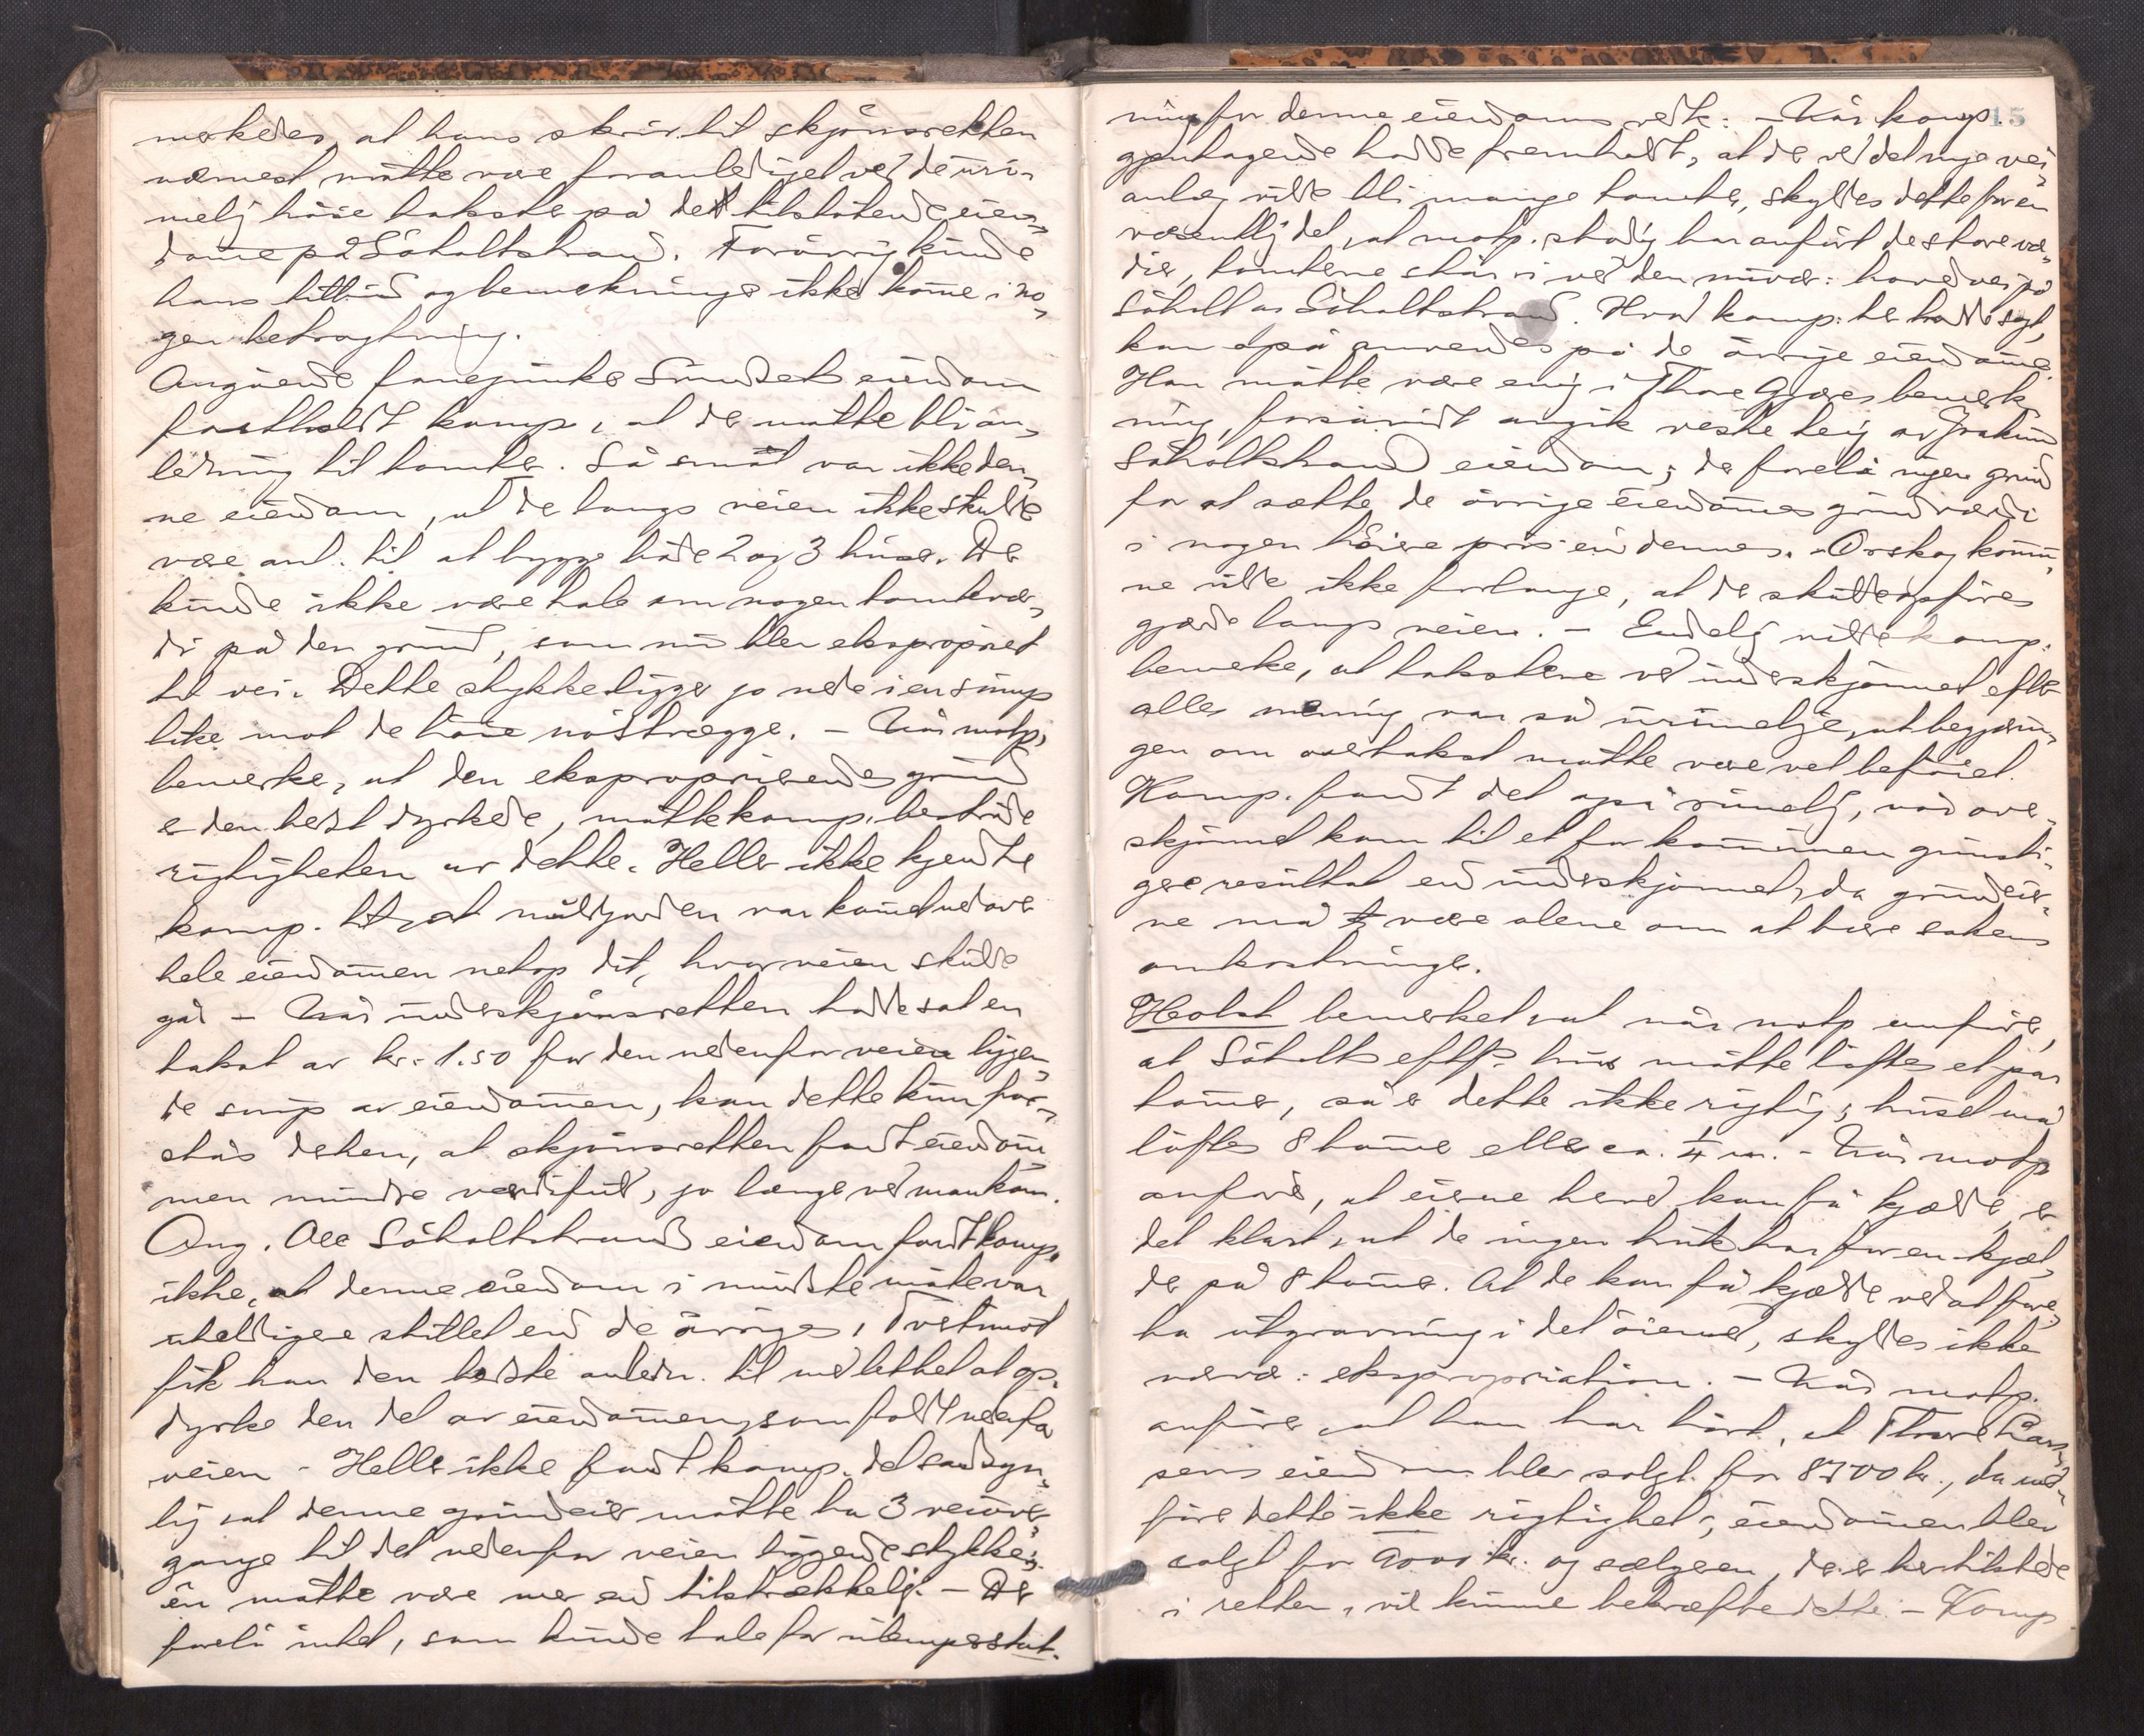 merkedes, at hans skriv. til skjønsretten
nærmest måtte være foranlediget ved de uri-
melig höie takster på de tilstötende eien-
domme på Söholtstrand. Forövrig kunde
hans tilbud og bemerkninger ikke komme i no-
gen betragtning.
Angående fanejunker Sundets eiendom
fastholdt komp., at der måtte bli an-
ledning til tomter. Så smal var ikke den-
ne eiendom, at der langs veien ikke skulde
være anl. til at bygge både 2 og 3 huse. Der
kunde ikke være tale om nogen tomteвær-
di på den grund, som nu blev ekspropriert
til vei. Dette stykke ligger jo nede i en sump
like mot de höie nöstvægge. - Når motp.
bemerker, at den eksproprierende grund
er den bedst dyrkede, måtte komp. bestride
rigtigheten av dette. Heller ikke kjendte
komp. til, at muldjorden var kommet ned over
hele eiendommen netop dit, hvor veien skulde
gå. - Når underskjønsretten hadde sat en
takst av kr. 1.50 for den nedenfor veien liggen-
de sump av eiendommen, kan dette kun for-
stås derhen, at skjønsretten fandt eiendom-
men mindre værdifuld, jo længer ned man kom.
Ang. Ole Söholtstrands eiendom fandt komp.
ikke, at denne eiendom i mindste måte var
uheldigere stillet end de övrige, tvertimot
fik han den bedste anledn. til med lethet at op-
dyrke den del av eiendommen, som faldt nedenfor
veien. - Heller ikke fandt komp. det sandsyn-
lig, at denne grundeier måtte ha 3 veiover-
gange til det nedenfor veien liggende stykke;
én måtte være mer end tilstrækkelig. - Der
forelå intet, som kunde tale for ulempeerstat-
15
ning for denne eiendoms vedk. - Når komp.
gjentagende hadde fremholdt, at der ved det nye vei-
anlæg vilde bli mange tomter, skyldes dette for en
væsentlig del, at motp. stadig har anfört de store vær-
dier, tomterne står i ved den nuvær. hovedvei på
Söholt og Söholtstrand. Hvad komp. her hadde sagt,
kan også anvendes på de övrige eiendomme.
Han måtte være enig i Thore Gjæres bemerk-
ning, forsåvidt angik vestre teig av Joakim
Söholtstrands eiendom; der forelå ingen grund
for at sætte de övrige eiendommes grundværdi
i nogen höiere pris end dennes. - Örskog kommu-
ne vilde ikke forlange, at der skulde opföres
gjærde langs veien. - Endelig vilde komp.
bemerke, at takstene ved underskjønnet efter
alles mening var så urimelige, at begjærin-
gen om overtakst måtte være vel beföiet.
Komp. fandt det også rimelig, når over-
skjønnet kom til et for kommunen gunsti-
gere resultat end underskjønnet, da grundeier-
ne må være alene om at bære sakens
omkostninger.
Holst bemerket, at når motp. anförer,
at Söholts eftf.s hus måtte löftes et par
tommer, så er dette ikke rigtig; huset må
löftes 8 tommer eller ca. ¼ m. - Når motp.
anförer, at eierne herved kan få kjælder, er
det klart, at de ingen bruk har for en kjæl-
der på 8 tommer. At de kan få kjælder ved at fore-
ta utgravning i det öiemed, skyldes ikke
nærvær. ekspropriation. - Når motp.
anförer, at han har hört, at Thore Lar-
sens eiendom blev solgt for 8700 kr., da med-
förer dette ikke rigtighet; eiendommen blev
solgt for 9000 kr. og sælgeren, der er her tilstede
i retten, vil kunne bekræfte dette. - Komp.